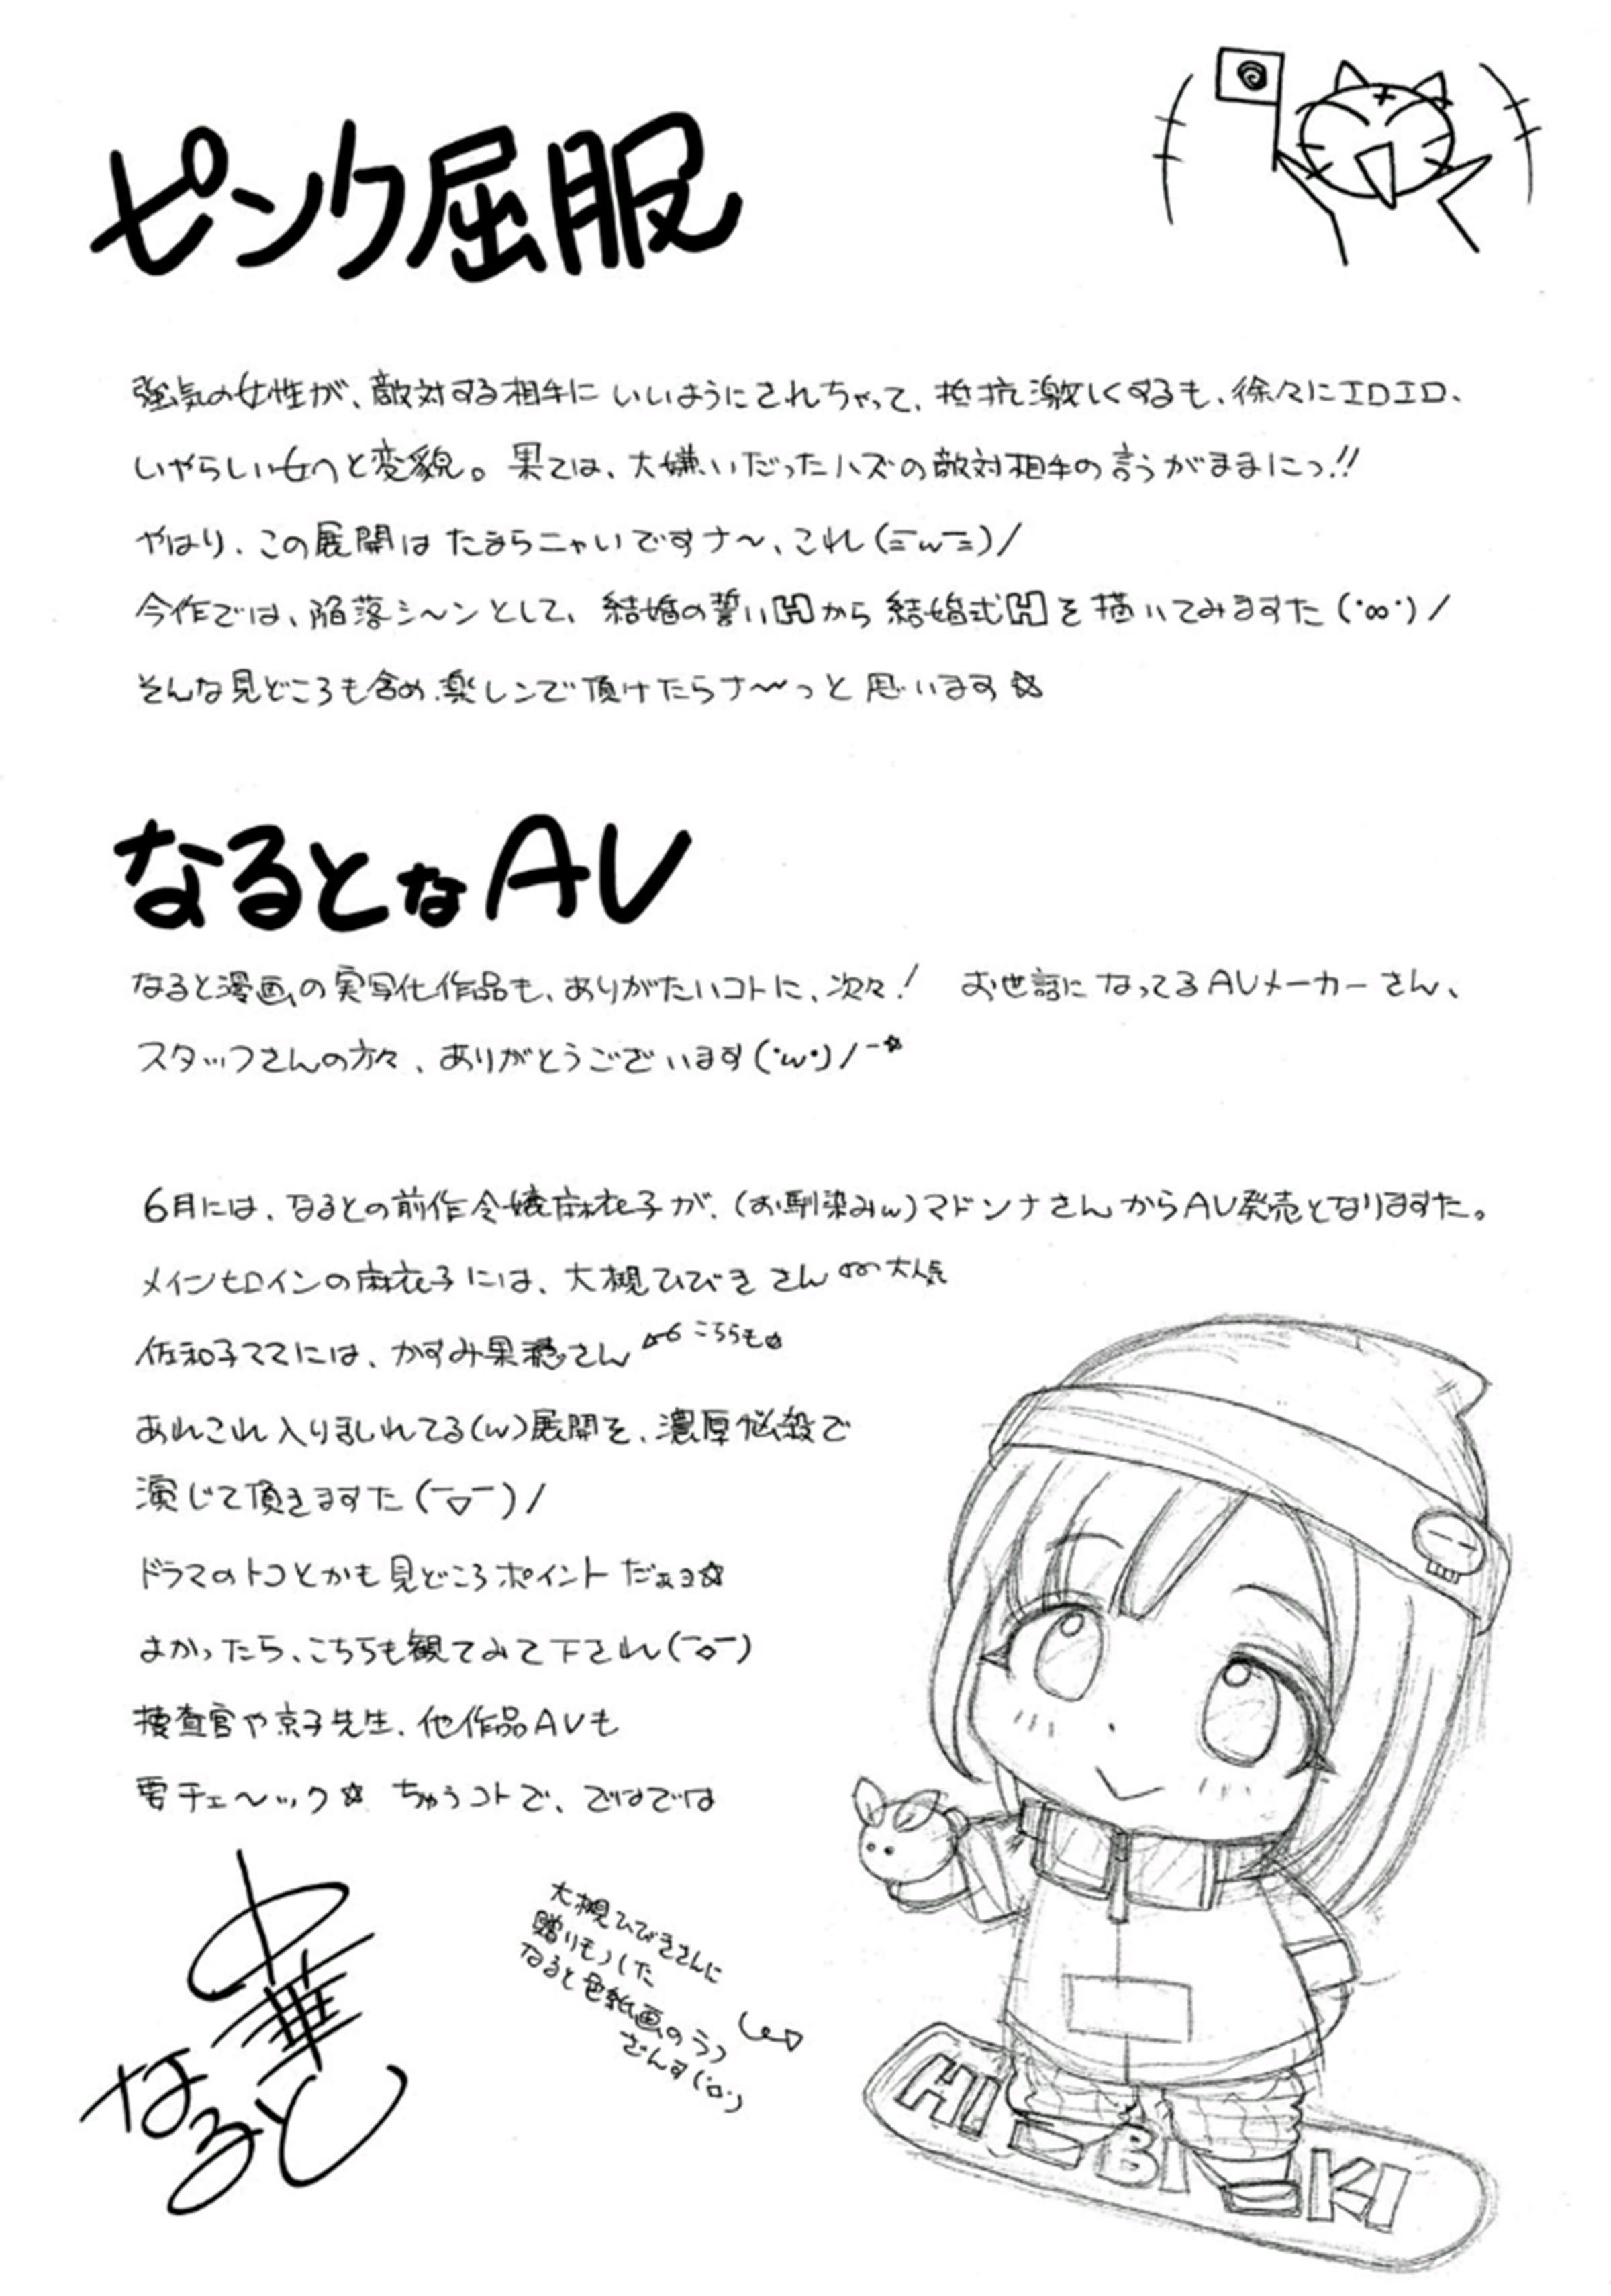 ピンク屈服
強気の女性が、敵対する相手にいいようにされちゃって、抵抗激しくするも、徐々にエロエロ、
いやらしい女へと変貌。果ては、大嫌いだったハズの敵対相手の言うがままにっ!!
やはり、この展開はたまらニャいですナ〜、これ(ΞwΞ)/
今作では、陥落シ〜ンとして、結婚の誓いHから結婚式Hを描いてみますた(・∞・)/
そんな見どころも含め、楽しンで頂けたらナ〜っと思います☆
なるとなAV
なると漫画の実写化作品も、ありがたいコトに、次々! お世話になってるAVメーカーさん、
スタッフさんの方々、ありがとうございます(・ω・)/-☆
6月には、なるとの前作令嬢麻衣子が、(お馴染みw)マドンナさんからAV発売となりますた。
メインヒロインの麻衣子には、大槻ひびきさん 大人気
佐和子ママには、かすみ果穂さん こちらも
あれこれ入りみだれてる(w)展開を、濃厚悩殺で
演じて頂きますた(￣▽￣)/
ドラマのトコとかも見どころポイントだぁョ☆
よかったら、こちらも観てみて下され(￣◇￣)
捜査官や京子先生、他作品AVも
要チェ〜ック☆ ちゅうコトで、ではでは
中華
なると
大槻ひびきさんに
贈りものした
なると色紙画のラフ
ざんす(・ロ・)
HIBIKI